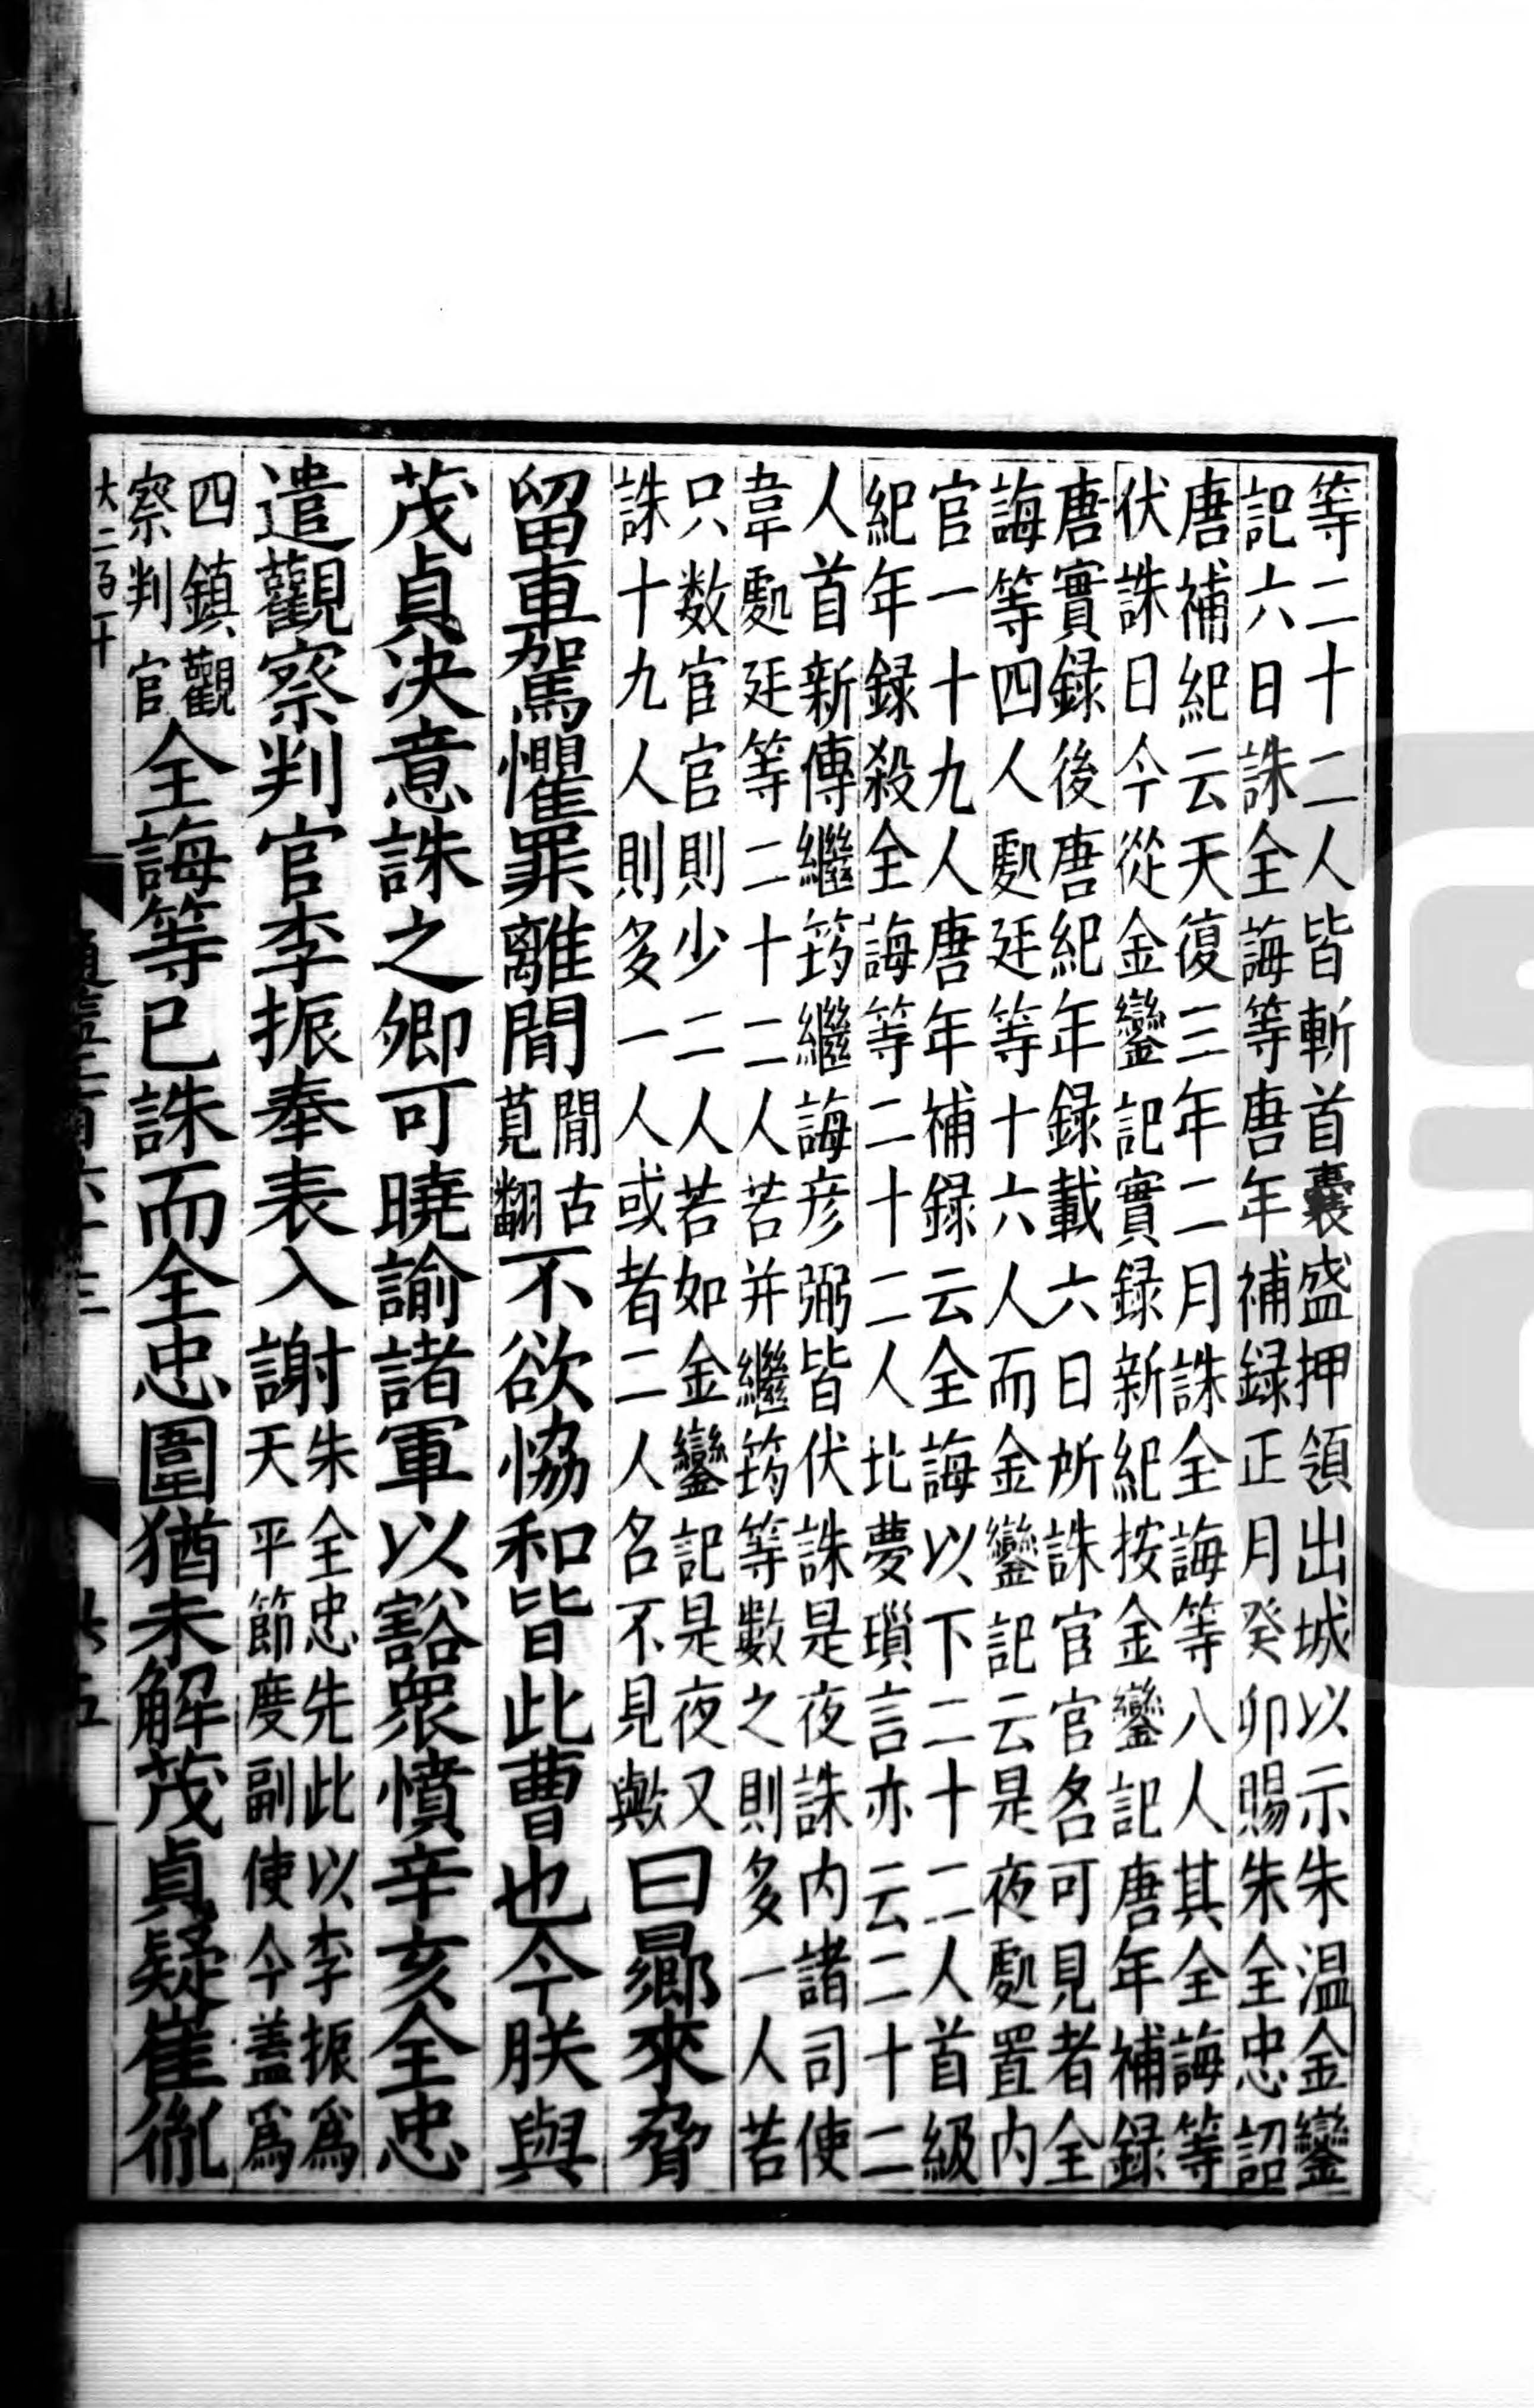 等二十二人皆斬首囊盛押領出城以示朱温金鑾
記六日誅全誨等唐年補録正月癸卯賜朱全忠詔
唐補紀云天復三年二月誅全誨等八人其全誨等
伏誅日今從金鑾記實録新紀按金鑾記唐年補録
唐實録後唐紀年録載六日所誅官官名可見者全
誨等四人處廷等十六人而金鑾記云是夜處置内
官一十九人唐年補録云全誨以下二十二人首級
紀年録殺全誨等二十二人北夢瑣言亦云二十二
人首新傳繼筠繼誨彦弼皆伏誅是夜誅内諸司使
韋處廷等二十二人若并繼筠等數之則多一人若
只数宦官則少二人若如金鑾記是夜又
誅十九人則多一人或者二人名不見歟
曰曏來脅
留車駕懼罪離間
閒古
莧翻
不欲恊和皆此曹也今朕與
茂貞決意誅之卿可曉諭諸軍以豁衆憤辛亥全忠
遣觀察判官李振奉表入謝
朱全忠先此以李振爲
天平節度副使今蓋爲
四鎮觀
察判官
全誨等已誅而全忠圍猶未解茂貞疑崔胤